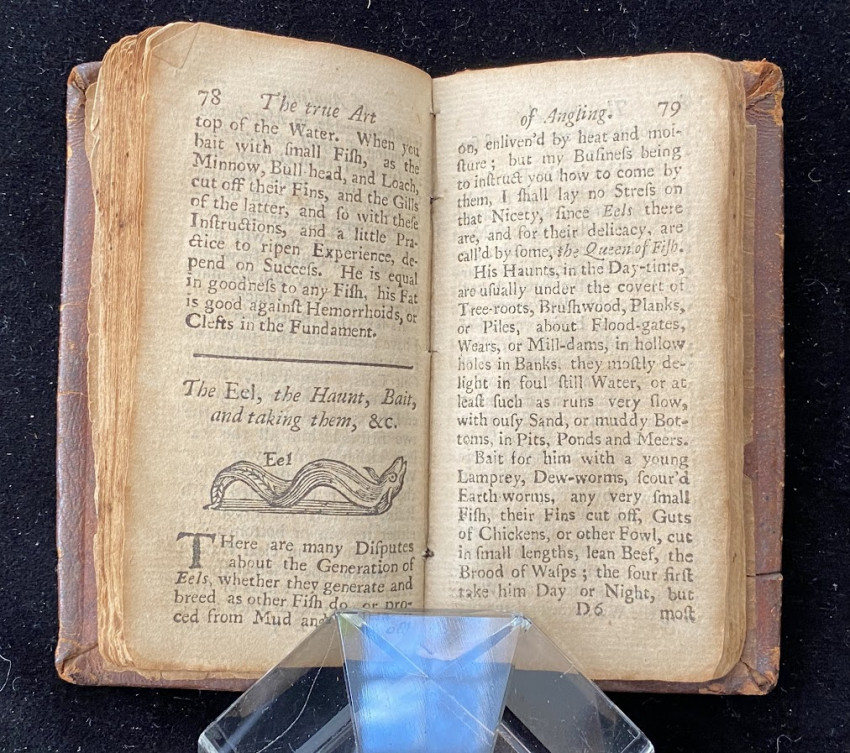 78 The true Art
top of the Water. When you
bait with ſmall Fiſh, as the
Minnow, Bull head, and Loach,
cut off their Fins, and the Gills
of the latter, and ſo with theſe
Inſtructions, and a little Pra-
ctice to ripen Experience, de-
pend on Succeſs. He is equal
in goodneſs to any Fiſh, his Fat
is good againſt Hemorrhoids, or
Clefts in the Fundament.
The Eel, the Haunt, Bait,
and taking them, &c.
Eel
THere are many Diſputes
about the Generation of
Eels, whether they generate and
breed as other Fiſh do, or pro-
ced from Mud and
of Angling. 79
on, enliven'd by heat and moi-
ſture; but my Buſineſs being
to inſtruct you how to come by
them, I ſhall lay no Streſs on
that Nicety, ſince Eels there
are, and for their delicacy, are
call'd by ſome, the Queen of Fiſh.
His Haunts, in the Day-time,
are uſually under the covert of
Tree-roots, Bruſhwood, Planks,
or Piles, about Flood-gates,
Wears, or Mill-dams, in hollow
holes in Banks. they moſtly de-
light in foul ſtill Water, or at
leaſt ſuch as runs very ſlow,
with ouſy Sand, or muddy Bot-
toms, in Pits, Ponds and Meers.
Bait for him with a young
Lamprey, Dew-worms, ſcour'd
Earth-worms, any very ſmall
Fiſh, their Fins cut off, Guts
of Chickens, or other Fowl, cut
in ſmall lengths, lean Beef, the
Brood of Waſps; the four firſt
take him Day or Night, but
D6 moſt